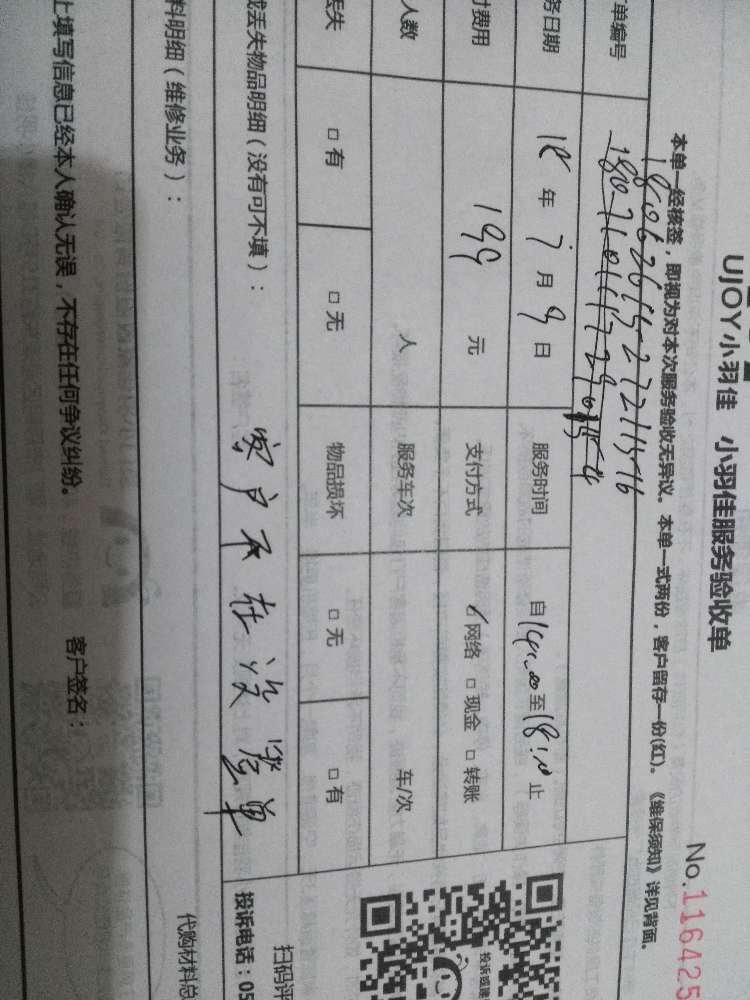 UJOY小羽佳 小羽佳服务验收单
No.116425
本单一经核签，即视为对本次服务验收无异议。本单一式两份，客户留存一份(红)。《维保须知》详见背面。
单编号
务日期 18年7月9日 服务时间 自 至 止
付费用 199元 支付方式 网络 □现金 □转账
人数 人 服务车次 车/次
丢失 □有 □无 物品损坏 □无 □有
或丢失物品明细（没有可不填）：
客户不在没签单
料明细（维修业务）：
上填写信息已经本人确认无误，不存在任何争议纠纷。 客户签名：
扫码评
投诉电话：05
代购材料总